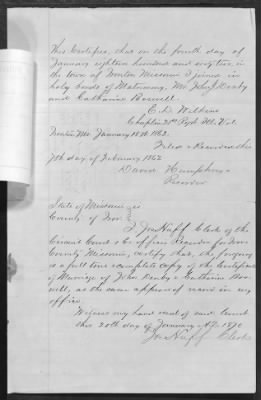 This Certifies, that on the fourth day of
January eighteen hundred and sixty two, in
the town of Ironton Missouri I joined in
holy bonds of Matrimony, Mr John Denby
and Catharine Bonnell.
C. D. Wilkins
Chaplin 21st Regt. Ill. Vol.
Ironton Mo. January 18th 1862.
Filed & Recorded this
7th day of February 1862
David Humphrys
Recorder
State of Missouri
County of Iron
I Jno Huff Clerk of the
Circuit Court & Ex officio Recorder for Iron
County Missouri, certify that, the foregoing
is a full true & complete copy of the Certificate
of Marriage of John Denby & Catharine Bon-
nell, as the same appears of record in my
office.
Witness my hand seal of said Court
this 20th day of January A.D. 1890
Jno Huff Clerk